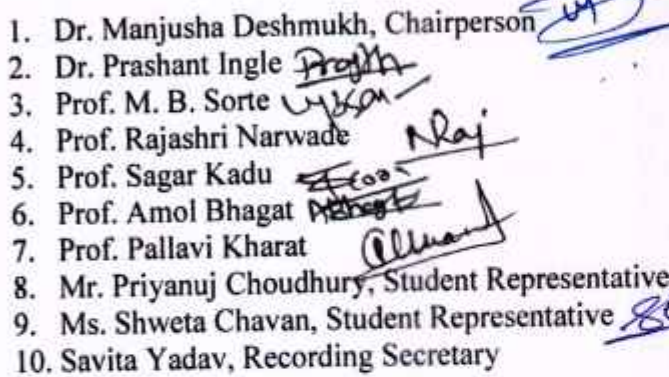 1. Dr. Manjusha Deshmukh, Chairperson
2. Dr. Prashant Ingle
3. Prof. M. B. Sorte
4. Prof. Rajashri Narwade NRaj
5. Prof. Sagar Kadu
6. Prof. Amol Bhagat
7. Prof. Pallavi Kharat
8. Mr. Priyanuj Choudhury, Student Representative
9. Ms. Shweta Chavan, Student Representative
10. Savita Yadav, Recording Secretary